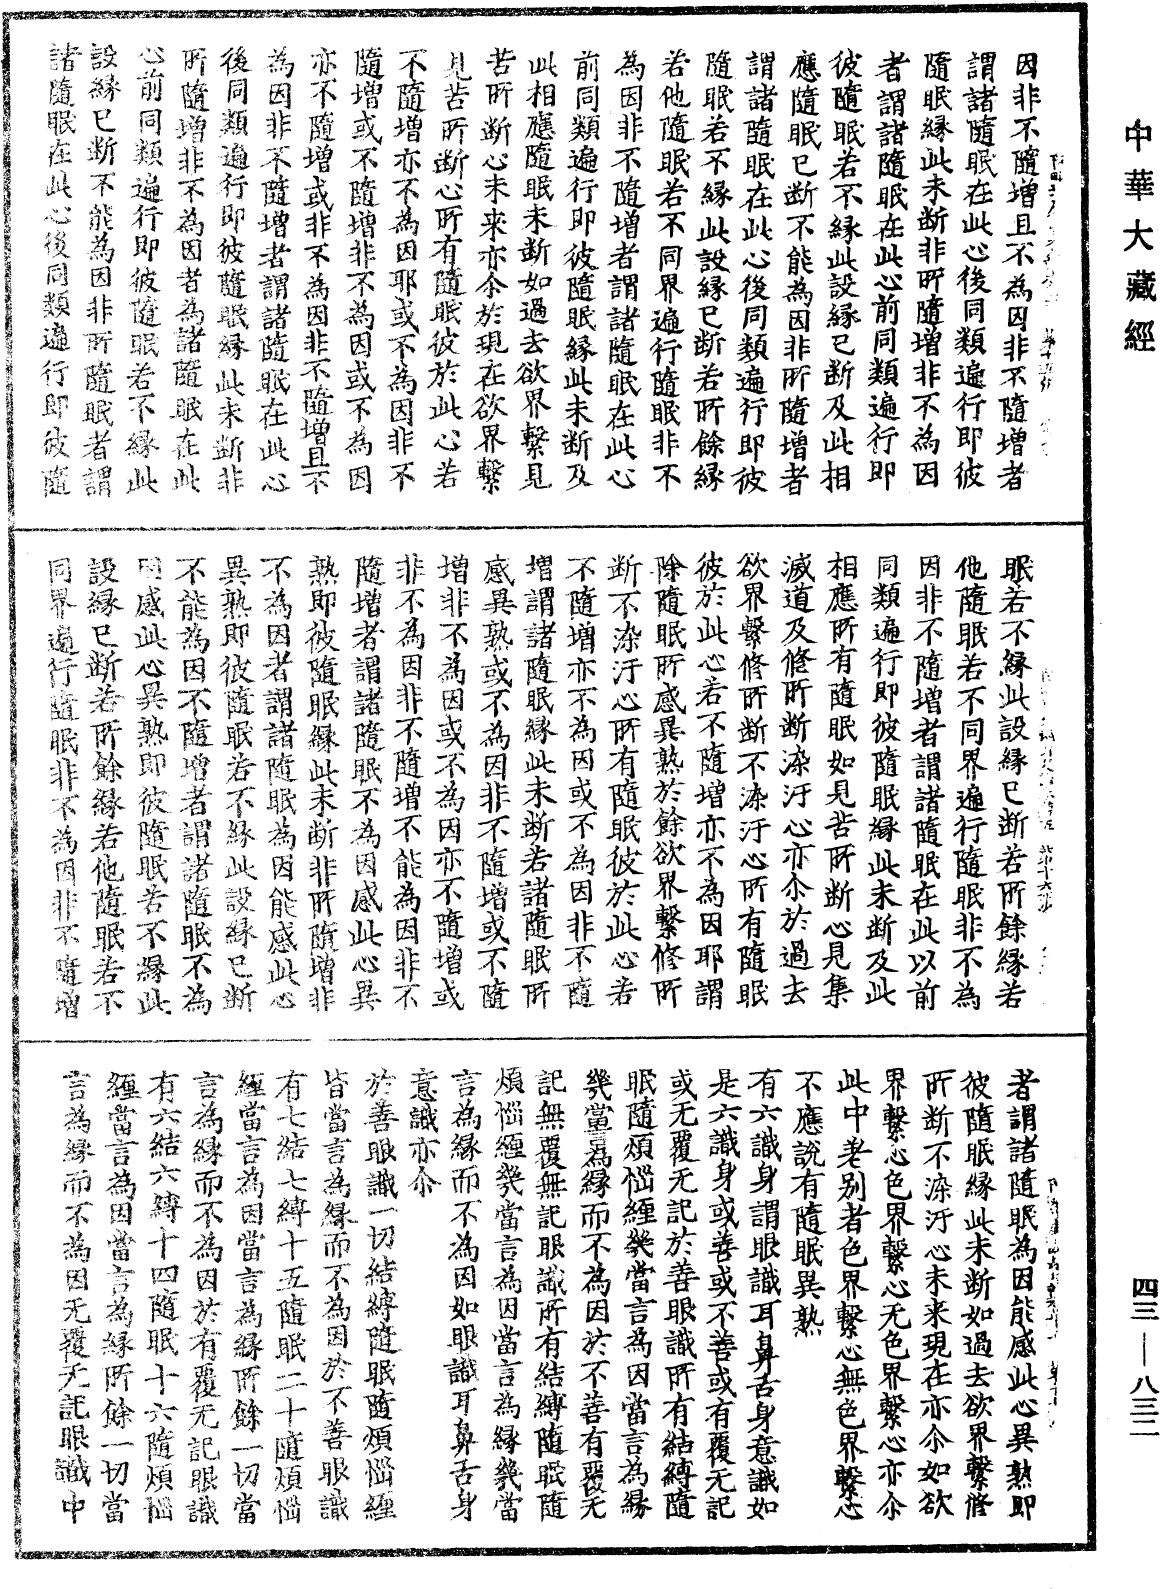 中華大藏經
因非不隨增且不為因非不隨增者
謂諸隨眠在此心後同類遍行即彼
隨眠緣此未断非所隨增非不為因
者謂諸隨眠在此心前同類遍行即
彼隨眠若不緣此設緣已断及此相
應隨眠已断不能為因非所隨增者
謂諸隨眠在此心後同類遍行即彼
隨眠若不緣此設緣已断若所餘緣
若他隨眠若不同界遍行隨眠非不
為因非不隨增者謂諸隨眠在此心
前同類遍行即彼隨眠緣此未断及
此相應隨眠未断如過去欲界繫見
苦所断心未来亦尒於現在欲界繫
見苦所断心所有隨眠彼於此心若
不隨增亦不為因耶或不為因非不
隨增或不隨增非不為因或不為因
亦不隨增或非不為因非不隨增且不
為因非不隨增者謂諸隨眠在此心
後同類遍行即彼隨眠緣此未断非
所隨增非不為因者為諸隨眠在此
心前同類遍行即彼隨眠若不緣此
設緣已断不能為因非所隨眠者謂
諸隨眠在此心後同類遍行即彼隨
眠若不緣此設緣已断若所餘緣若
他隨眠若不同界遍行隨眠非不為
因非不隨增者謂諸隨眠在此以前
同類遍行即彼隨眠緣此未断及此
相應所有隨眠如見苦所断心見集
滅道及修所断染汙心亦尒於過去
欲界繫修所断不染汙心所有隨眠
彼於此心若不隨增亦不為因耶謂
除隨眠所感異熟於餘欲界繫修所
断不染汙心所有隨眠彼於此心若
不隨增亦不為因或不為因非不隨
增謂諸隨眠緣此未断若諸隨眠所
感異熟或不為因非不隨增或不隨
增非不為因或不為因亦不隨增或
非不為因非不隨增不能為因非不
隨增者謂諸隨眠不為因感此心異
熟即彼隨眠緣此未断非所隨增非
不為因者謂諸隨眠為因能感此心
異熟即彼隨眠若不緣此設緣已断
不能為因不隨增者謂諸隨眠不為
因感此心異熟即彼隨眠若不緣此
設緣已断若所餘緣若他隨眠若不
同界遍行隨眠非不為因非不隨增
者謂諸隨眠為因能感此心異熟即
彼隨眠緣此未断如過去欲界繫修
所断不染汙心未来現在亦尒如欲
界繫心色界繫心无色界繫心亦尒
此中差别者色界繫心無色界繫心
不應說有隨眠異熟
有六識身謂眼識耳鼻舌身意識如
是六識身或善或不善或有覆无記
或无覆无記於善眼識所有結縛隨
眠隨煩惱纏幾當言為因當言為緣
幾當為緣而不為因於不善有覆无
記無覆無記眼識所有結縛隨眠隨
煩惱纏幾當言為因當言為緣幾當
言為緣而不為因如眼識耳鼻舌身
意識亦尒
於善眼識一切結縛隨眠隨煩惱纏
皆當言為緣而不為因於不善眼識
有七結七縛十五隨眠二十隨煩惱
纏當言為因當言為緣所餘一切當
言為緣而不為因於有覆无記眼識
有六結六縛十四隨眠十六隨煩惱
纏當言為因當言為緣所餘一切當
言為緣而不為因无覆无記眼識中
四三—八三二